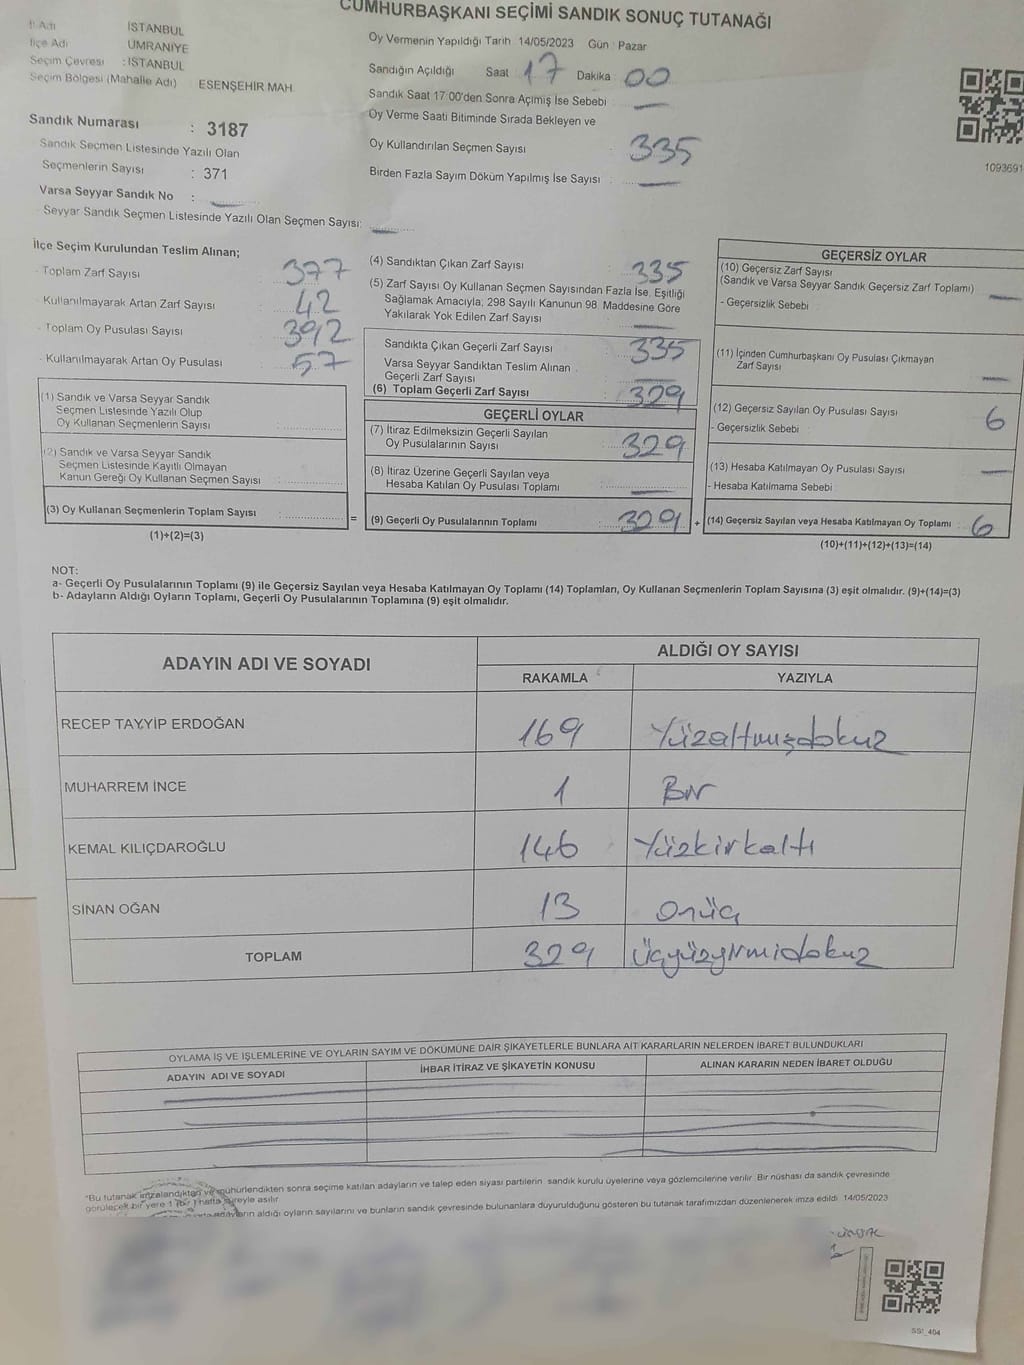 CUMHURBAŞKANI SEÇİMİ SANDIK SONUÇ TUTANAĞI
İl Adı İSTANBUL
İlçe Adı ÜMRANİYE
Seçim Çevresi : İSTANBUL
Seçim Bölgesi (Mahalle Adı) ESENŞEHİR MAH.
Sandık Numarası : 3187
Sandık Seçmen Listesinde Yazılı Olan
Seçmenlerin Sayısı : 371
Varsa Seyyar Sandık No :
Seyyar Sandık Seçmen Listesinde Yazılı Olan Seçmen Sayısı:
Oy Vermenin Yapıldığı Tarih 14/05/2023 Gün : Pazar
Sandığın Açıldığı Saat 17 Dakika 00
Sandık Saat 17:00'den Sonra Açımış İse Sebebi
Oy Verme Saati Bitiminde Sırada Bekleyen ve
Oy Kullandırılan Seçmen Sayısı : 335
Birden Fazla Sayım Döküm Yapılmış İse Sayısı :
1093691
İlçe Seçim Kurulundan Teslim Alınan;
- Toplam Zarf Sayısı : 377
- Kullanılmayarak Artan Zarf Sayısı : 42
- Toplam Oy Pusulası Sayısı : 392
- Kullanılmayarak Artan Oy Pusulası : 57
(1) Sandık ve Varsa Seyyar Sandık
Seçmen Listesinde Yazılı Olup
Oy Kullanan Seçmenlerin Sayısı :
(2) Sandık ve Varsa Seyyar Sandık
Seçmen Listesinde Kayıtlı Olmayan
Kanun Gereği Oy Kullanan Seçmen Sayısı :
(3) Oy Kullanan Seçmenlerin Toplam Sayısı :
(1)+(2)=(3)
=
(4) Sandıktan Çıkan Zarf Sayısı : 335
(5) Zarf Sayısı Oy Kullanan Seçmen Sayısından Fazla İse, Eşitliği
Sağlamak Amacıyla; 298 Sayılı Kanunun 98. Maddesine Göre
Yakılarak Yok Edilen Zarf Sayısı
Sandıkta Çıkan Geçerli Zarf Sayısı : 335
Varsa Seyyar Sandıktan Teslim Alınan
Geçerli Zarf Sayısı
(6) Toplam Geçerli Zarf Sayısı : 329
GEÇERLİ OYLAR
(7) İtiraz Edilmeksizin Geçerli Sayılan
Oy Pusulalarının Sayısı : 329
(8) İtiraz Üzerine Geçerli Sayılan veya
Hesaba Katılan Oy Pusulası Toplamı :
(9) Geçerli Oy Pusulalarının Toplamı : 329
+
GEÇERSİZ OYLAR
(10) Geçersiz Zarf Sayısı
(Sandık ve Varsa Seyyar Sandık Geçersiz Zarf Toplamı)
- Geçersizlik Sebebi
(11) İçinden Cumhurbaşkanı Oy Pusulası Çıkmayan
Zarf Sayısı
(12) Geçersiz Sayılan Oy Pusulası Sayısı : 6
- Geçersizlik Sebebi
(13) Hesaba Katılmayan Oy Pusulası Sayısı
- Hesaba Katılmama Sebebi
(14) Geçersiz Sayılan veya Hesaba Katılmayan Oy Toplamı : 6
(10)+(11)+(12)+(13)=(14)
NOT:
a- Geçerli Oy Pusulalarının Toplamı (9) ile Geçersiz Sayılan veya Hesaba Katılmayan Oy Toplamı (14) Toplamları, Oy Kullanan Seçmenlerin Toplam Sayısına (3) eşit olmalıdır. (9)+(14)=(3)
b- Adayların Aldığı Oyların Toplamı, Geçerli Oy Pusulalarının Toplamına (9) eşit olmalıdır.
ADAYIN ADI VE SOYADI
ALDIĞI OY SAYISI
RAKAMLA YAZIYLA
RECEP TAYYİP ERDOĞAN 169 Yüzaltmışdokuz
MUHARREM İNCE 1 Bir
KEMAL KILIÇDAROĞLU 146 Yüzkirkaltı
SİNAN OĞAN 13 onüç
TOPLAM 329 Üçyüzyirmidokuz
OYLAMA İŞ VE İŞLEMLERİNE VE OYLARIN SAYIM VE DÖKÜMÜNE DAİR ŞİKAYETLERLE BUNLARA AİT KARARLARIN NELERDEN İBARET BULUNDUKLARI
ADAYIN ADI VE SOYADI İHBAR İTİRAZ VE ŞİKAYETİN KONUSU ALINAN KARARIN NEDEN İBARET OLDUĞU
*Bu tutanak imzalandıktan ve mühürlendikten sonra seçime katılan adayların ve talep eden siyasi partilerin sandık kurulu üyelerine veya gözlemcilerine verilir. Bir nüshası da sandık çevresinde
görülecek bir yere 1 (bir) hafta süreyle asılır.
adayların aldığı oyların sayılarını ve bunların sandık çevresinde bulunanlara duyurulduğunu gösteren bu tutanak tarafımızdan düzenlenerek imza edildi. 14/05/2023
SS1_404